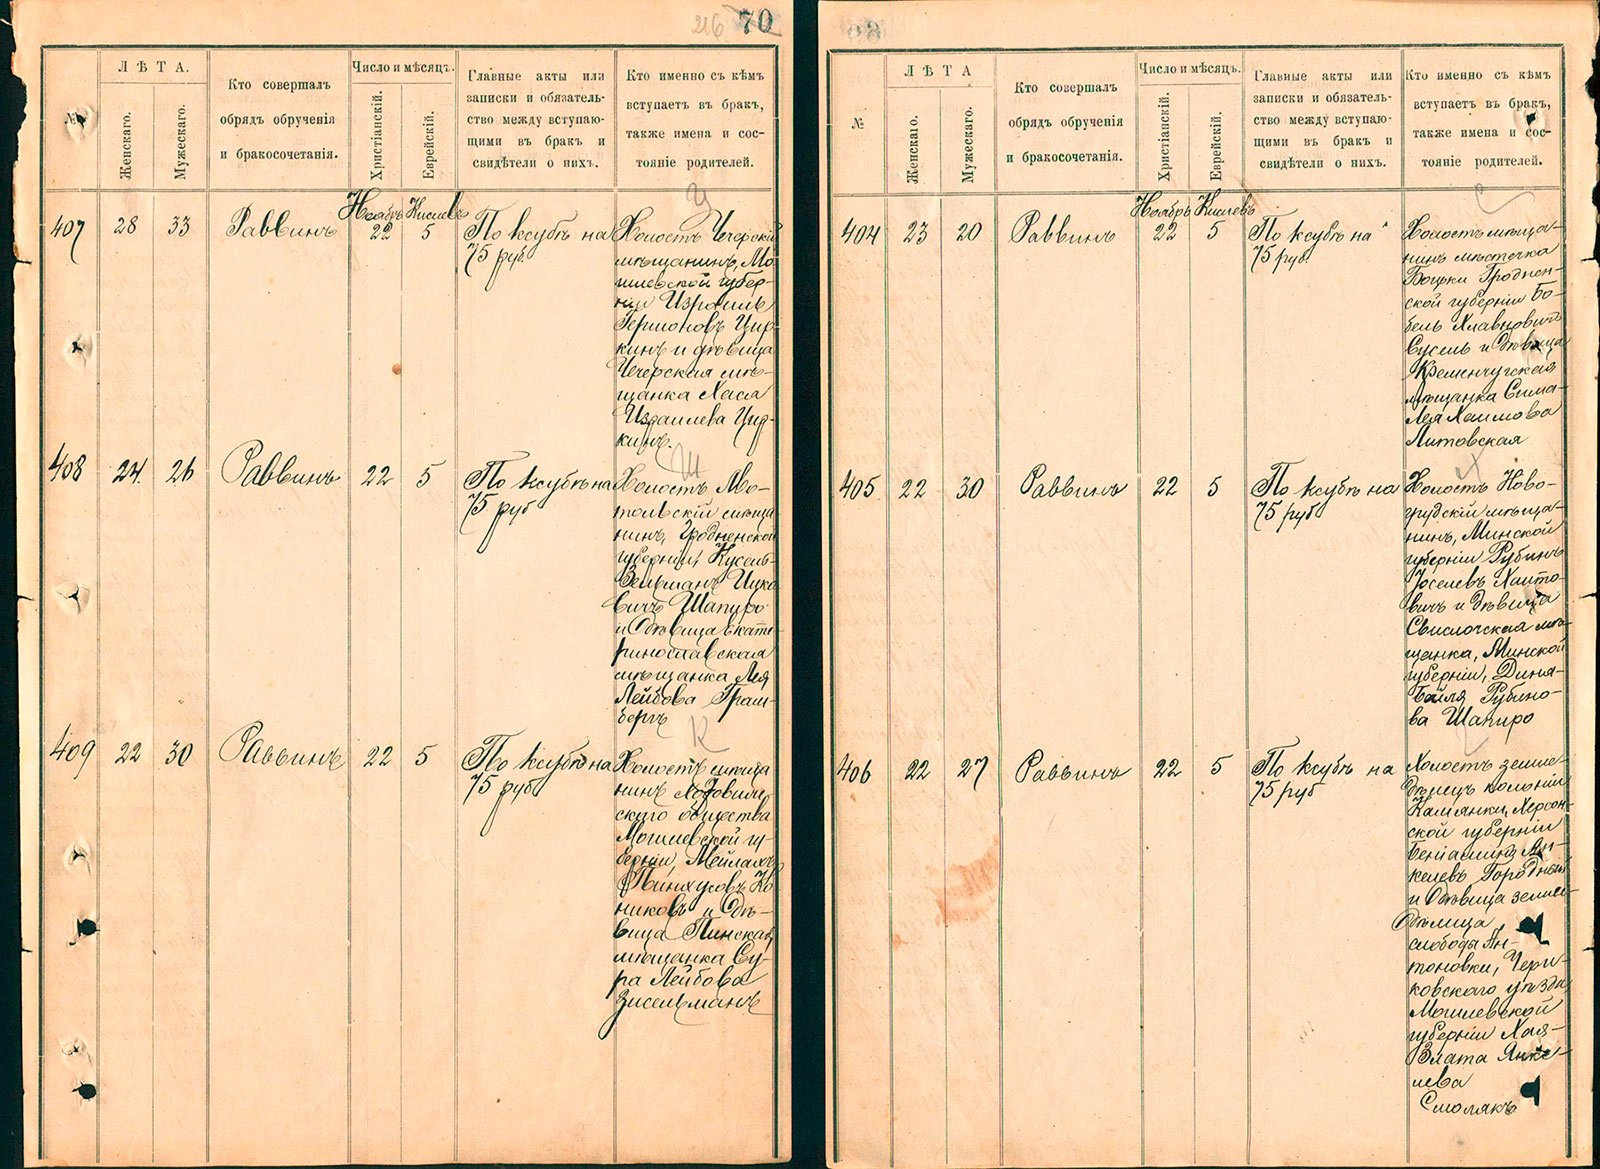 216 70
№
ЛѢТА.
Женскаго.
Мужескаго.
Кто совершалъ
обрядъ обрученія
и бракосочетанія.
Число и мѣсяцъ.
Христіанскій.
Еврейскій.
Главные акты или
записки и обязатель-
ство между вступаю-
щими въ бракъ и
свидѣтели о нихъ.
Кто именно съ кѣмъ
вступаетъ въ бракъ,
также имена и сос-
тояніе родителей.
Ц
407 28 33 Раввинъ
Ноябрь Кислевъ
22 5
По ксубѣ на
75 руб.
Холостъ Чечерскій
мѣщанинъ, Мо-
гилевской губер-
ніи Израиль
Гершоновъ Цир-
кинъ и дѣвица
Чечерская мѣ-
щанка Хася
Израилева Цир-
кинъ.
Ш
408 24 26 Раввинъ 22 5
По ксубѣ на
75 руб
Холостъ Мо-
тольскій мѣща
нинъ, Гродненской
губерніи, Кусель-
Зельманъ Ицко
вичъ Шапиро
и дѣвица Екате-
ринославская
мѣщанка Лея
Лейбова Граш-
бергъ
К
409 22 30 Раввинъ 22 5
По ксубѣ на
75 руб
Холостъ мѣща
нинъ
скаго общества
Могилевской гу-
берніи, Мейлахъ
Пинхусовъ Ко
никовъ и дѣ-
вица Пинская
мѣщанка Су-
ра Лейбова
Зисельманъ
№
ЛѢТА
Женскаго.
Мужескаго.
Кто совершалъ
обрядъ обрученія
и бракосочетанія.
Число и мѣсяцъ.
Христіанскій.
Еврейскій.
Главные акты или
записки и обязатель-
ство между вступаю-
щими въ бракъ и
свидѣтели о нихъ.
Кто именно съ кѣмъ
вступаетъ въ бракъ,
также имена и сос-
тояніе родителей.
С
404 23 20 Раввинъ
Ноябрь Кислевъ
22 5
По ксубѣ на
75 руб.
Холостъ мѣща-
нинъ мѣстечка
Боцьки Гроднен-
ской губерніи Бо-
бель
Сусель и дѣвица
Кременчугская
мѣщанка Сима-
Лея Хаимова
Литовская
Х
405 22 30 Раввинъ 22 5
По ксубѣ на
75 руб
Холостъ Ново-
грудскій мѣща-
нинъ, Минской
губерніи Рубинъ
Іоселевъ Хаито-
вичъ и дѣвица
Свислочская мѣ-
щанка, Минской
губерніи, Дина-
Бейля Рубино-
ва Шапиро
406 22 27 Раввинъ 22 5
По ксубѣ на
75 руб
Холостъ земле-
дѣлецъ колоніи
Камянки, Херсон-
ской губерніи
Беніаминъ Ян-
келевъ Городный
и дѣвица земле-
дѣлица,
слобода Ан-
тоновки, Чери-
ковскаго уѣзда,
Могилевской
губерніи Хая-
Злата Янке-
лева
Смолякъ